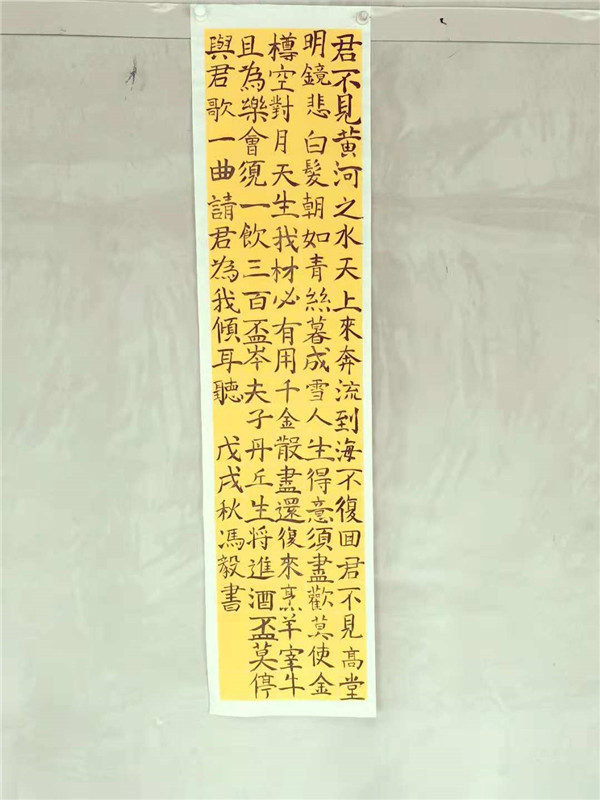 君不見黃河之水天上來奔流到海不復回君不見高堂
明鏡悲白髮朝如青絲暮成雪人生得意須盡歡莫使金
樽空對月天生我材必有用千金散盡還復來烹羊宰牛
且為樂會須一飲三百盃岑夫子丹丘生將進酒盃莫停
與君歌一曲請君為我傾耳聽 戊戌秋馮毅書